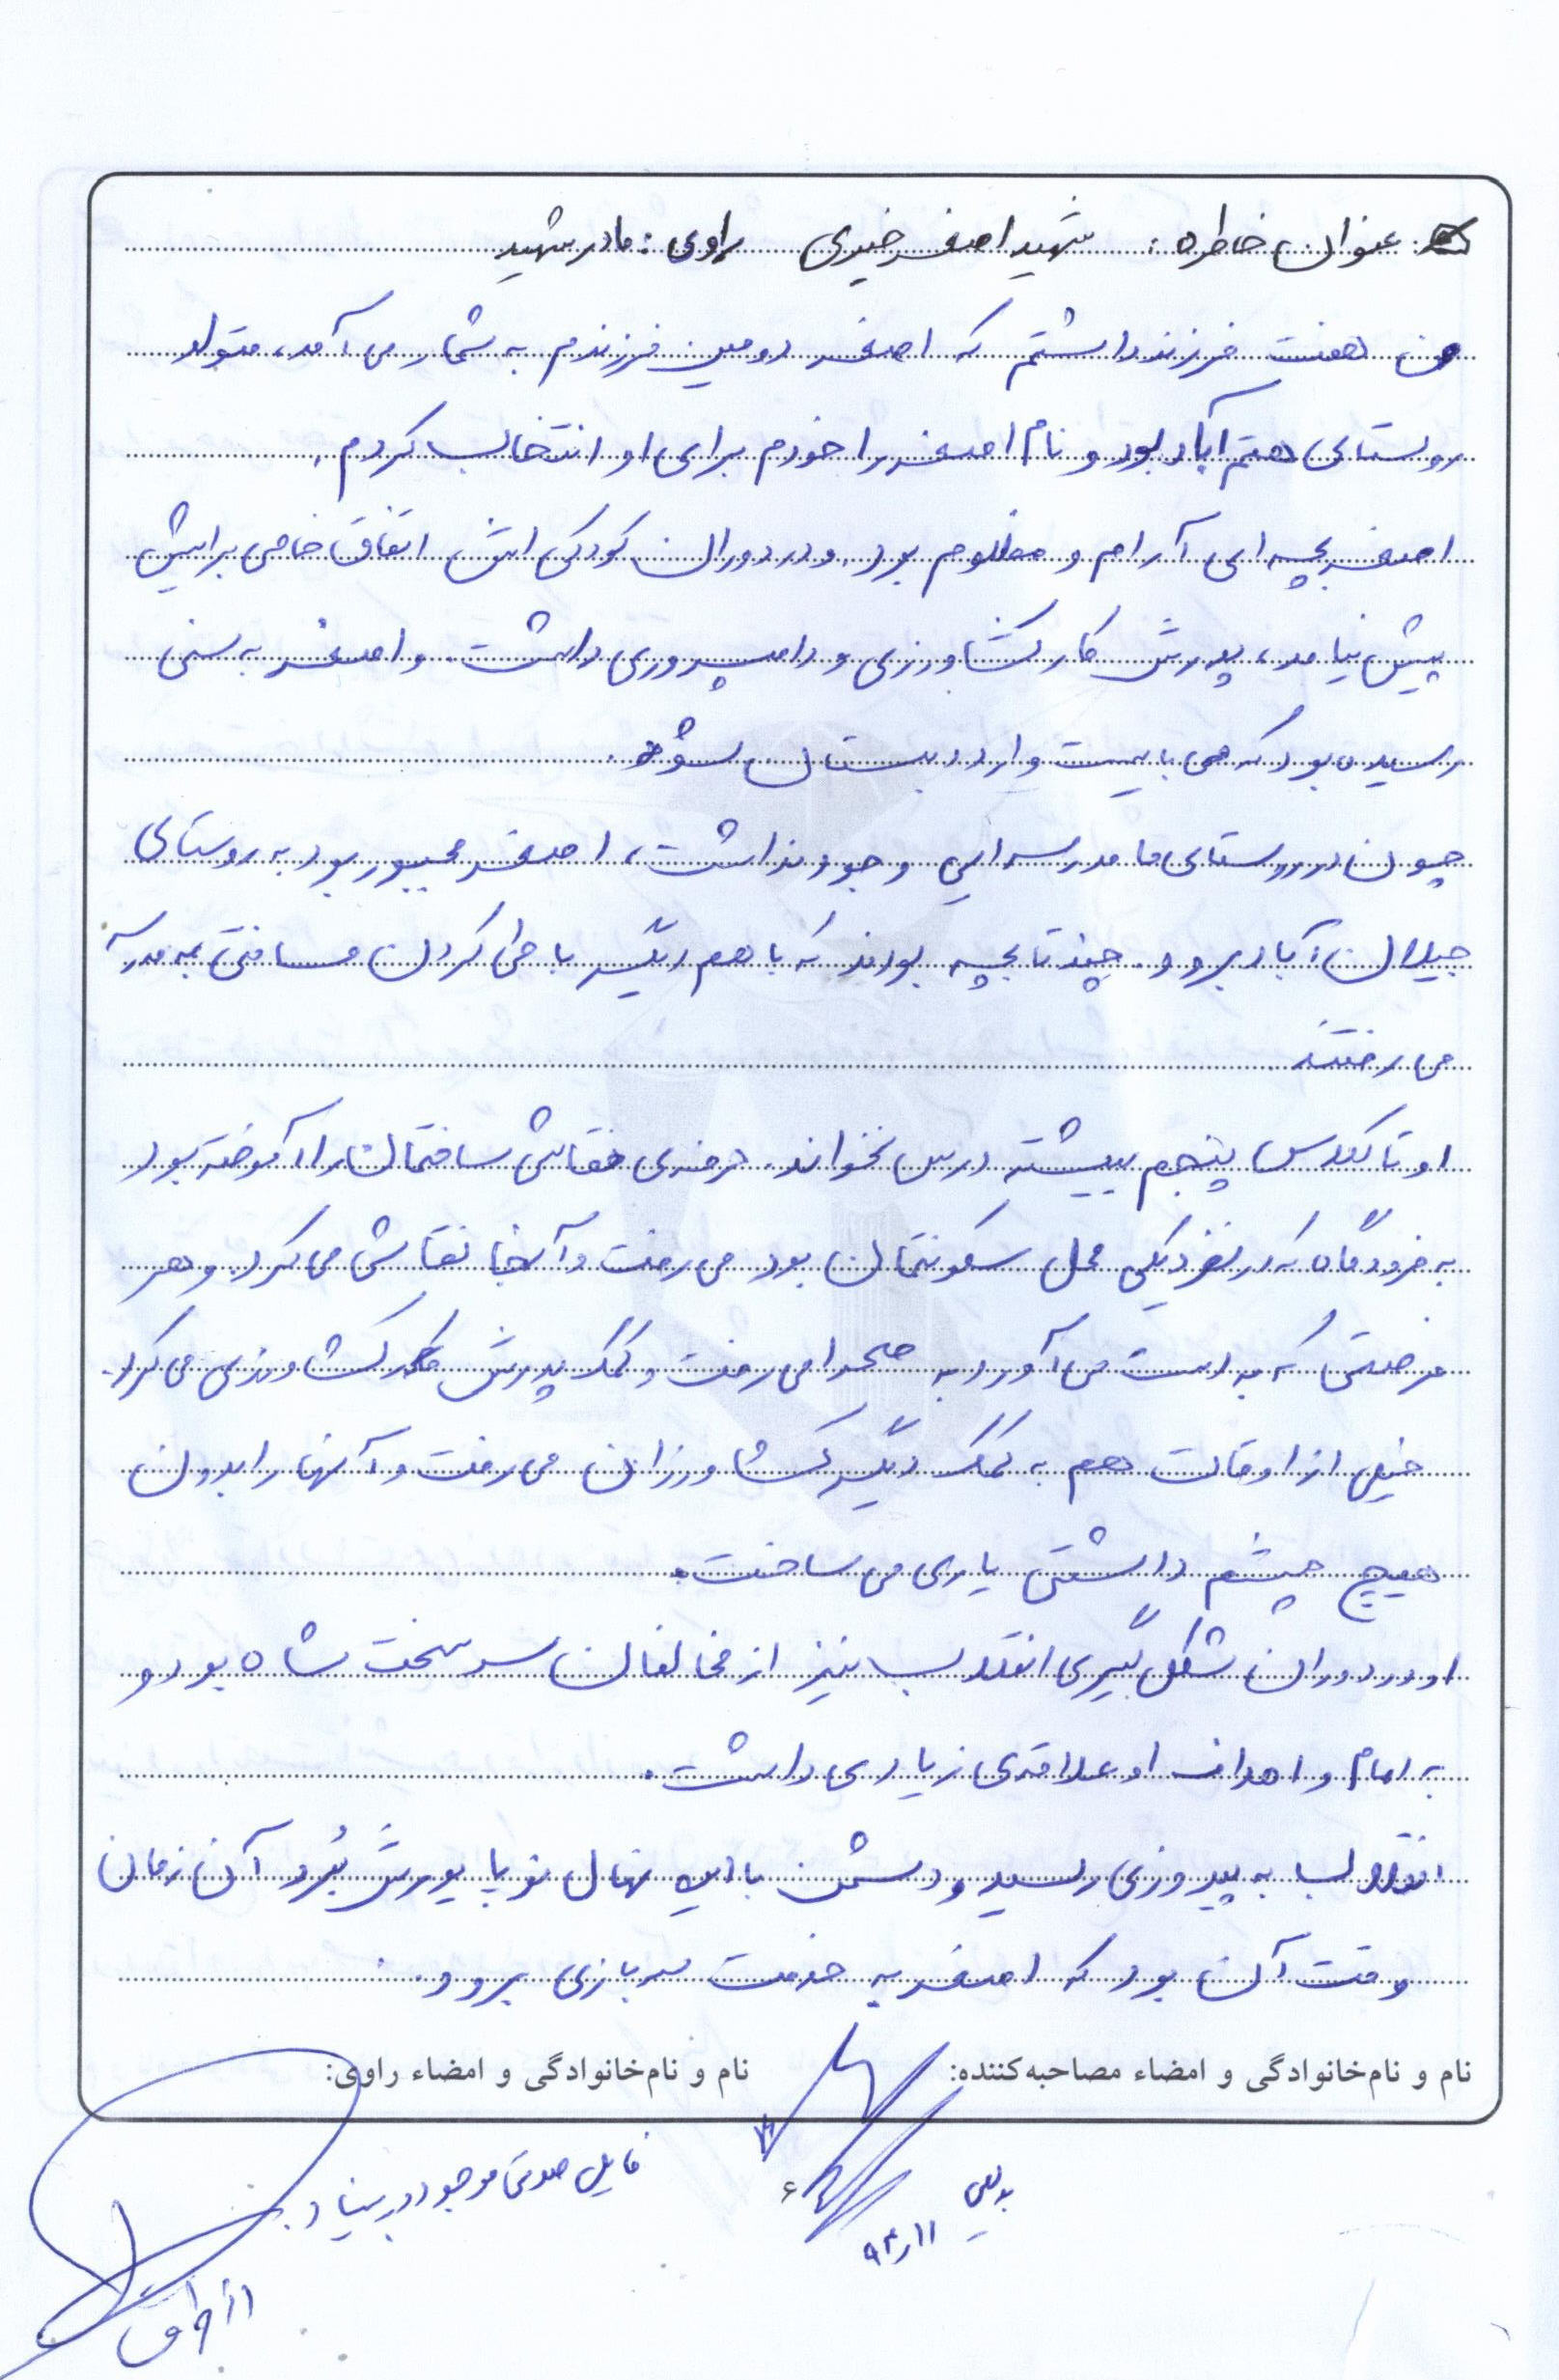 عنوان خاطره: شهید اصغر خیبری راوی: مادر شهید
من هفت فرزند داشتم که اصغر دومین فرزندم به شمار می آمد، متولد
روستای هتم آباد بود و نام اصغر را خودم برای او انتخاب کردم.
اصغر بچه ای آرام و مظلوم بود. و در دوران کودکی اش اتفاق خاصی برایش
پیش نیامد، پدرش کار کشاورزی و دامپروری داشت. و اصغر به سنی
رسیده بود که می بایست وارد دبستان شود.
چون در روستای ما مدرسه ایی وجود نداشت، اصغر مجبور بود به روستای
جیلان آباد برود و چند تا بچه بودند که با هم دیگر با طی کردن مسافتی به مدرسه
می رفتند
او تا کلاس پنجم بیشتر درس نخواند. حرفه ی نقاشی ساختمان را آموخته بود
به فرودگاه که در نزدیکی محل سکونتمان بود می رفت و آنجا نقاشی می کرد. و هر
فرصتی که بدست می آورد به صحرا می رفت و کمک پدرش کشاورزی می کرد.
خیلی از اوقات هم به کمک دیگر کشاورزان می رفت و آنها را بدون
هیچ چشم داشتی یاری می ساخت.
او در دوران شکل گیری انقلاب نیز از مخالفان سر سخت شاه بود و
به امام و اهداف او علاقه ی زیادی داشت.
انقلاب به پیروزی رسید و دشمن با این نهال نوپا یورش بُرد آن زمان
وقت آن بود که اصغر به خدمت سربازی برود.
نام و نام‌خانوادگی و امضاء مصاحبه‌کننده: نام و نام‌خانوادگی و امضاء راوی:
فایل صوتی موجود در بنیاد